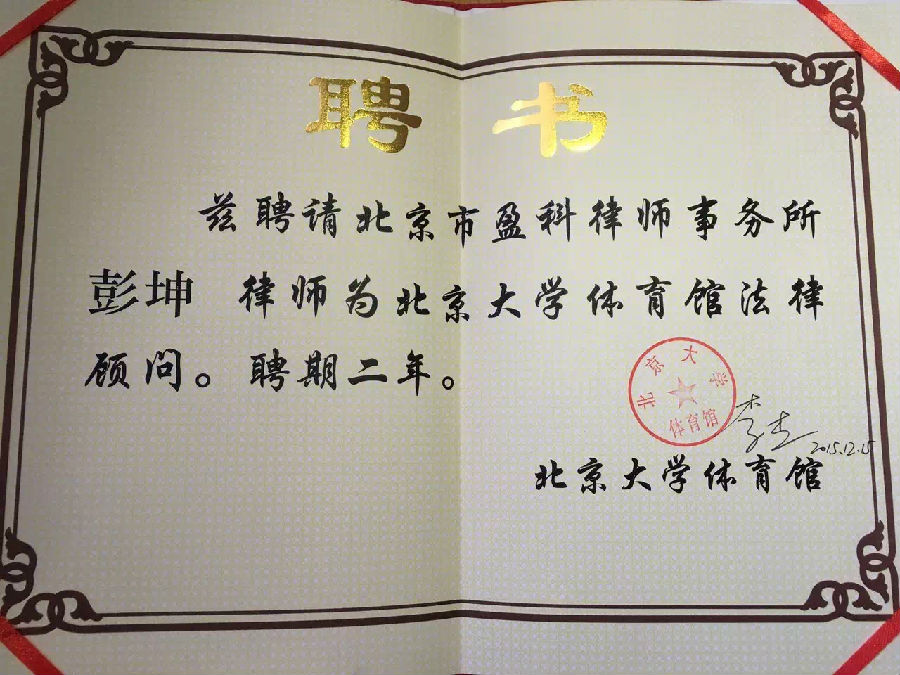 聘书
兹聘请北京市盈科律师事务所
彭坤 律师为北京大学体育馆法律
顾问。聘期二年。
北京大学
体育馆
2015.12.15
北京大学体育馆